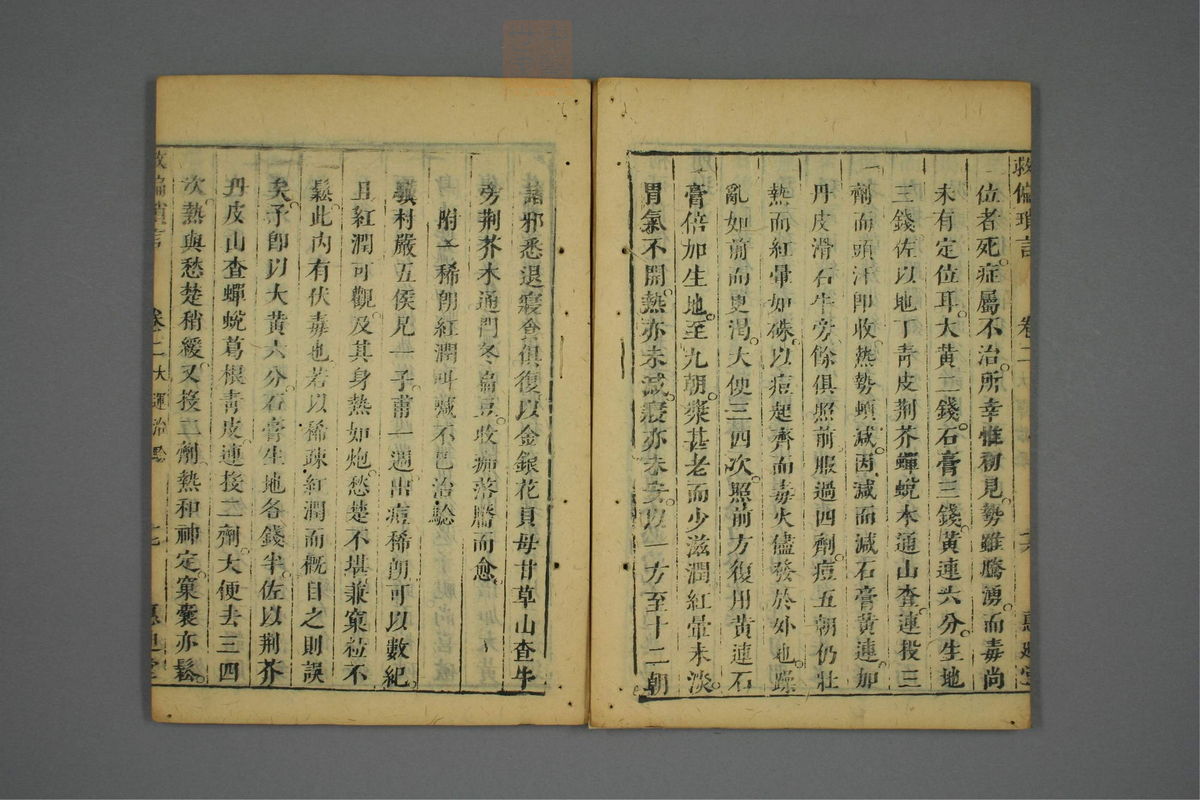 救偏瑣言 卷二 大運治 六 惠迪堂
位者死症屬不治所幸惟初見勢雖騰湧而毒尚
未有定位耳大黃二錢石膏三錢黃連六分生地
三錢佐以地丁青皮荆芥蟬蛻木通山查連投三
劑而頭汗即收熱勢頓減因減而減石膏黃連加
丹皮滑石牛旁餘俱照前服過四劑痘五朝仍壯
熱而紅暈如硃以痘起齊而毒火儘發於外也躁
亂如前而更渴大便三四次照前方復用黃連石
膏倍加生地至九朝漿甚老而少滋潤紅暈未淡
胃氣不開熱亦未減寢亦未安以一方至十二朝
諸邪悉退寢食俱復以金銀花貝母甘草山查牛
旁荆芥木通門冬扁豆收痂落靨而愈
附一稀朗紅潤叫喊不已治驗
驥村嚴五侯兄一子甫一週出痘稀朗可以數紀
且紅潤可觀及其身熱如炮愁楚不堪兼窠被不
鬆此內有伏毒也若以稀疎紅潤而概目之則誤
矣予即以大黃六分石膏生地各錢半佐以荆芥
丹皮山查蟬蛻葛根青皮連投二劑大便去三四
次熱與愁楚稍緩又投二劑熱和神定窠囊亦鬆
救偏瑣言 卷二 大運治驗 七 惠迪堂